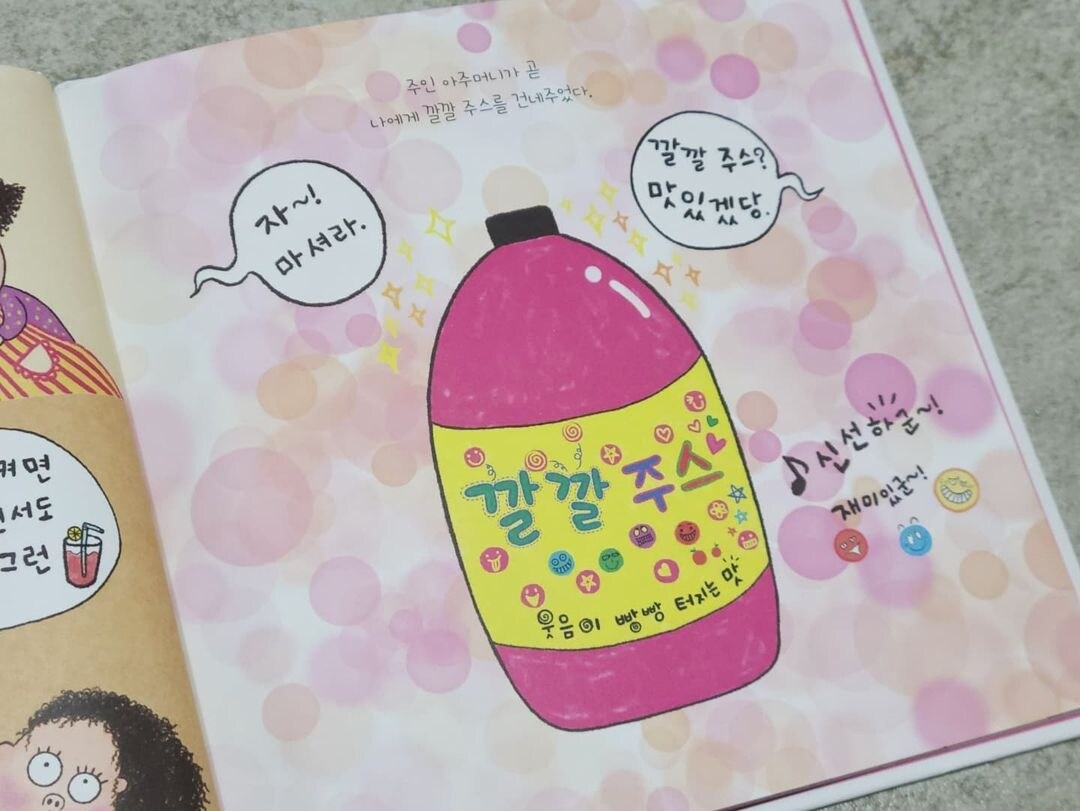 주인 아주머니가 곧
나에게 깔깔 주스를 건네주었다.
자~!
마셔라.
깔깔 주스?
맛있겠당.
깔깔 주스
웃음이 빵빵 터지는 맛
신선하군~!
재미있군~!
켜면
서도
그런